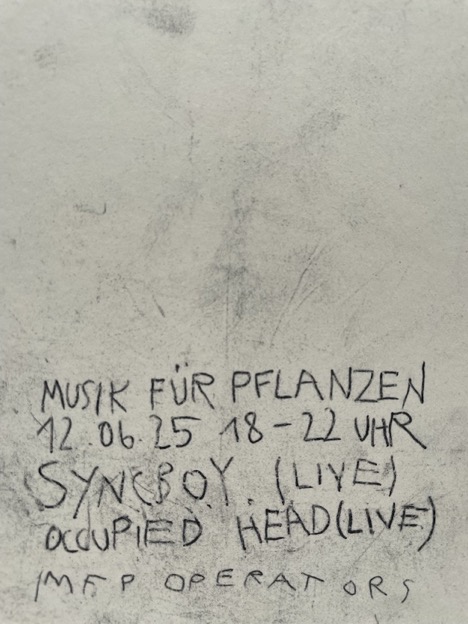 MUSIK FÜR PFLANZEN
12.06.25 18-22 UHR
SYNCBOY. (LIVE)
OCCUPIED HEAD (LIVE)
MFP OPERATORS